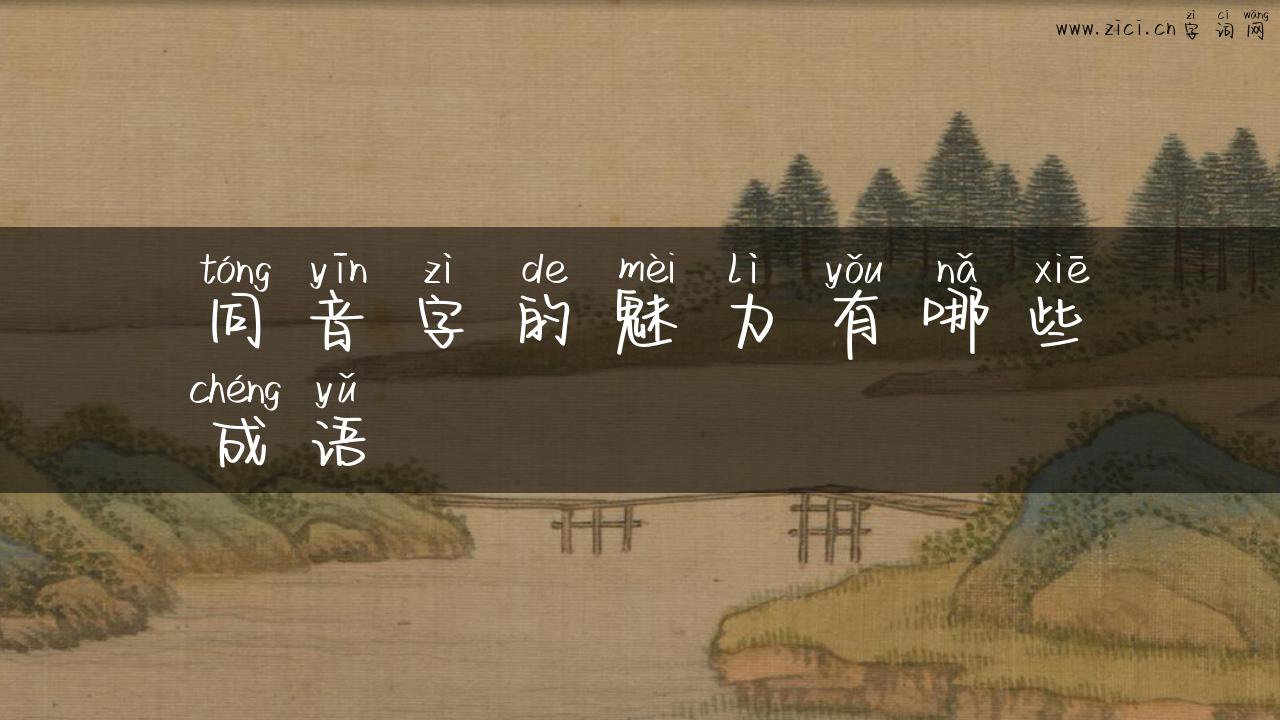 zì cí wǎng
www.zici.cn 字词网
tóng yīn zì de mèi lì yǒu nǎ xiē
同音字的魅力有哪些
chéng yǔ
成语